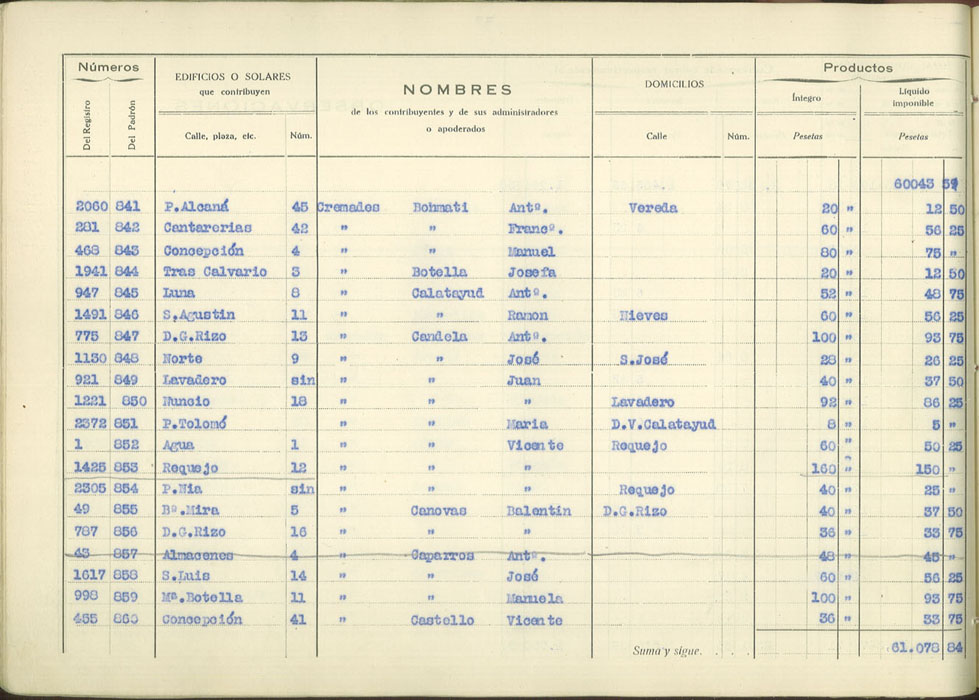 Números
EDIFICIOS O SOLARES
que contribuyen
NOMBRES
de los contribuyentes y de sus administradores
o apoderados
DOMICILIOS
Productos
Íntegro
Líquido
imponible
Del Registro Del Padrón Calle, plaza, etc. Núm. Calle Núm. Pesetas Pesetas
60043 59
2060 841 P.Alcaná 45 Cremades Bohmati Antº. Vereda 20 " 12 50
281 842 Cantarerias 42 " " Francº. 60 " 56 25
468 843 Concepción 4 " " Manuel 80 " 75 "
1941 844 Tras Calvario 3 " Botella Josefa 20 " 12 50
947 845 Luna 8 " Calatayud Antº. 52 " 48 75
1491 846 S.Agustin 11 " " Ramon Nieves 60 " 56 25
775 847 D.G.Rizo 13 " Candela Antº. 100 " 93 75
1130 848 Norte 9 " " José S.José 28 " 26 25
921 849 Lavadero sin " " Juan 40 " 37 50
1221 850 Nuncio 18 " " " Lavadero 92 " 86 25
2372 851 P.Tolomó " " Maria D.V.Calatayud 8 " 5 "
1 852 Agua 1 " " Vicente Requejo 60 " 50 25
1425 853 Requejo 12 " " " 160 " 150 "
2305 854 P.Nia sin " " " Requejo 40 " 25 "
49 855 Bº.Mira 5 " Canovas Balentin D.G.Rizo 40 " 37 50
787 856 D.G.Rizo 16 " " " 36 " 33 75
43 857 Almacenes 4 " Caparros Antº. 48 " 45 "
1617 858 S.Luis 14 " " José 60 " 56 25
998 859 Mª.Botella 11 " " Manuela 100 " 93 75
455 860 Concepción 41 " Castello Vicente 36 " 33 75
Suma y sigue. 61.078 84